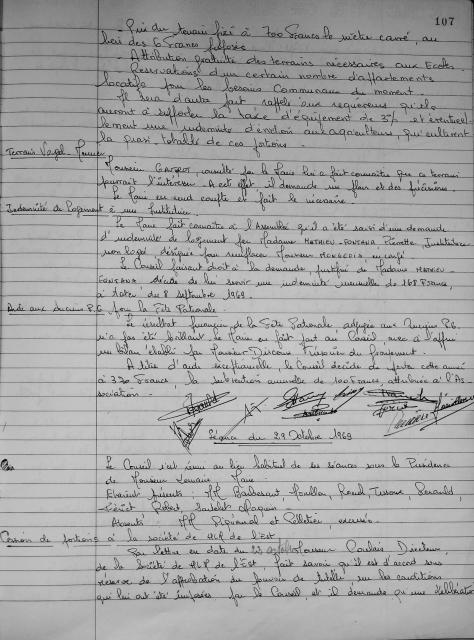 107
- Prix du terrain fixé à 700 Francs le mètre carré, au
lieu des 6 Francs
- Attribution gratuite des terrains nécessaires aux Ecoles.
- Réservations d'un certain nombre d'appartements
locatifs pour les besoins Communaux du moment.
Il sera d'autre part rappelé aux requereurs qu'ils
auront à supporter la taxe d'équipement de 3% et éventuel-
lement une indemnité d'éviction aux agriculteurs, qui cultivent
la quasi totalité de ces portions.
Terrain
Monsieur consulté par le Maire lui a fait connaître que ce terrain
pourrait l'intéresser. A cet effet, il demande un plan et des précisions.
Le Maire en rend compte et fait le nécessaire.
Indemnité de logement à une Institutrice.
Le Maire fait connaître à l'Assemblée qu'il a été saisi d'une demande
d'indemnité de logement par Madame MATHIEU-FONTANA Pierrette, Institutrice
non logée désignée pour remplacer Monsieur en congé
Le Conseil faisant droit à la demande justifiée de Madame MATHIEU-
FONTANA décide de lui servir une indemnité annuelle de 168 Francs,
à dater du 8 Septembre 1969.
Aide aux anciens P.G. pour la Fête Patronale.
Le résultat financier de la Fête Patronale adjugée aux Anciens P.G.
n'a pas été brillant. Le Maire en fait part au Conseil, avec à l'appui
un bilan établi par Monsieur Trésorier du Groupement.
A titre d'aide exceptionnelle, le Conseil décide de porter cette année
à 330 Francs, la subvention annuelle de 100 Francs, attribuée à l'As
sociation.
Séance du 29 Octobre 1969
Le Conseil s'est réuni au lieu habituel de ses séances sous la Présidence
de Monsieur Maire.
Etaient présents : MM
Robert,
Absents : MM et Pelletier, excusés.
Cession de portions à la société de HLM de l'Est
Par lettre en date du Monsieur Directeur,
de la Société de HLM de l'Est fait savoir qu'il est d'accord sous
réserve de l'approbation du pouvoir de tutelle, sur les conditions
qui lui ont été imposées par le Conseil, et il demande qu'une délibération